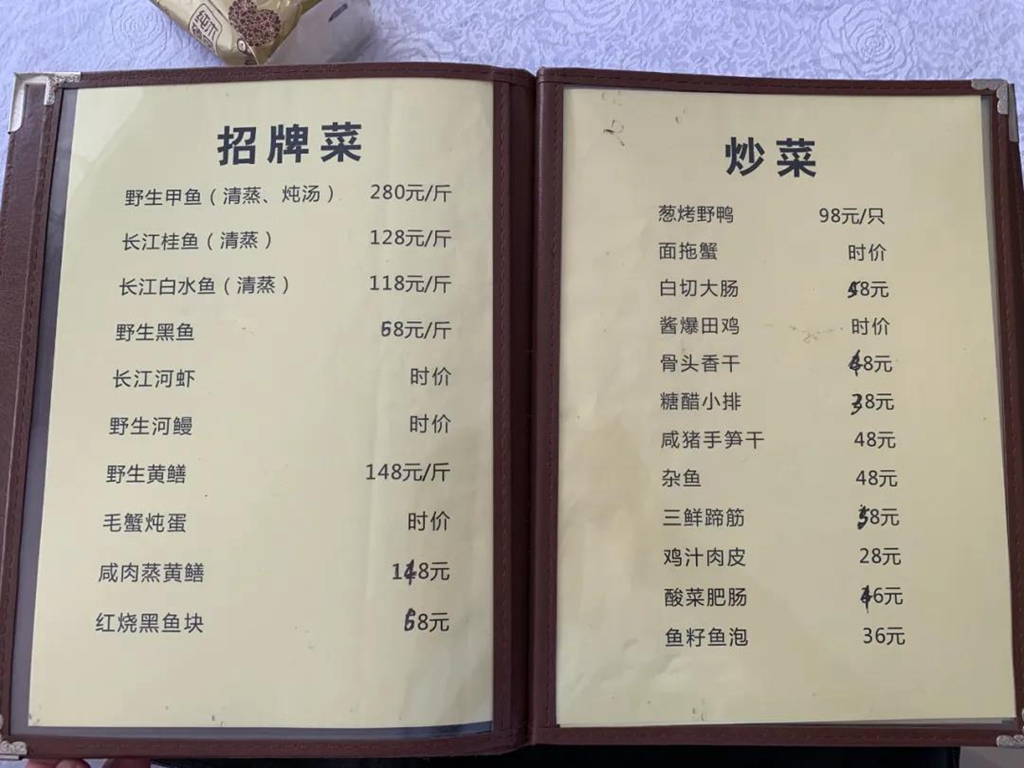 纯木
招牌菜
野生甲鱼（清蒸、炖汤） 280元/斤
长江桂鱼（清蒸） 128元/斤
长江白水鱼（清蒸） 118元/斤
野生黑鱼 68元/斤
长江河虾 时价
野生河鳗 时价
野生黄鳝 148元/斤
毛蟹炖蛋 时价
咸肉蒸黄鳝 148元
红烧黑鱼块 68元
炒菜
葱烤野鸭 98元/只
面拖蟹 时价
白切大肠 58元
酱爆田鸡 时价
骨头香干 48元
糖醋小排 38元
咸猪手笋干 48元
杂鱼 48元
三鲜蹄筋 58元
鸡汁肉皮 28元
酸菜肥肠 46元
鱼籽鱼泡 36元